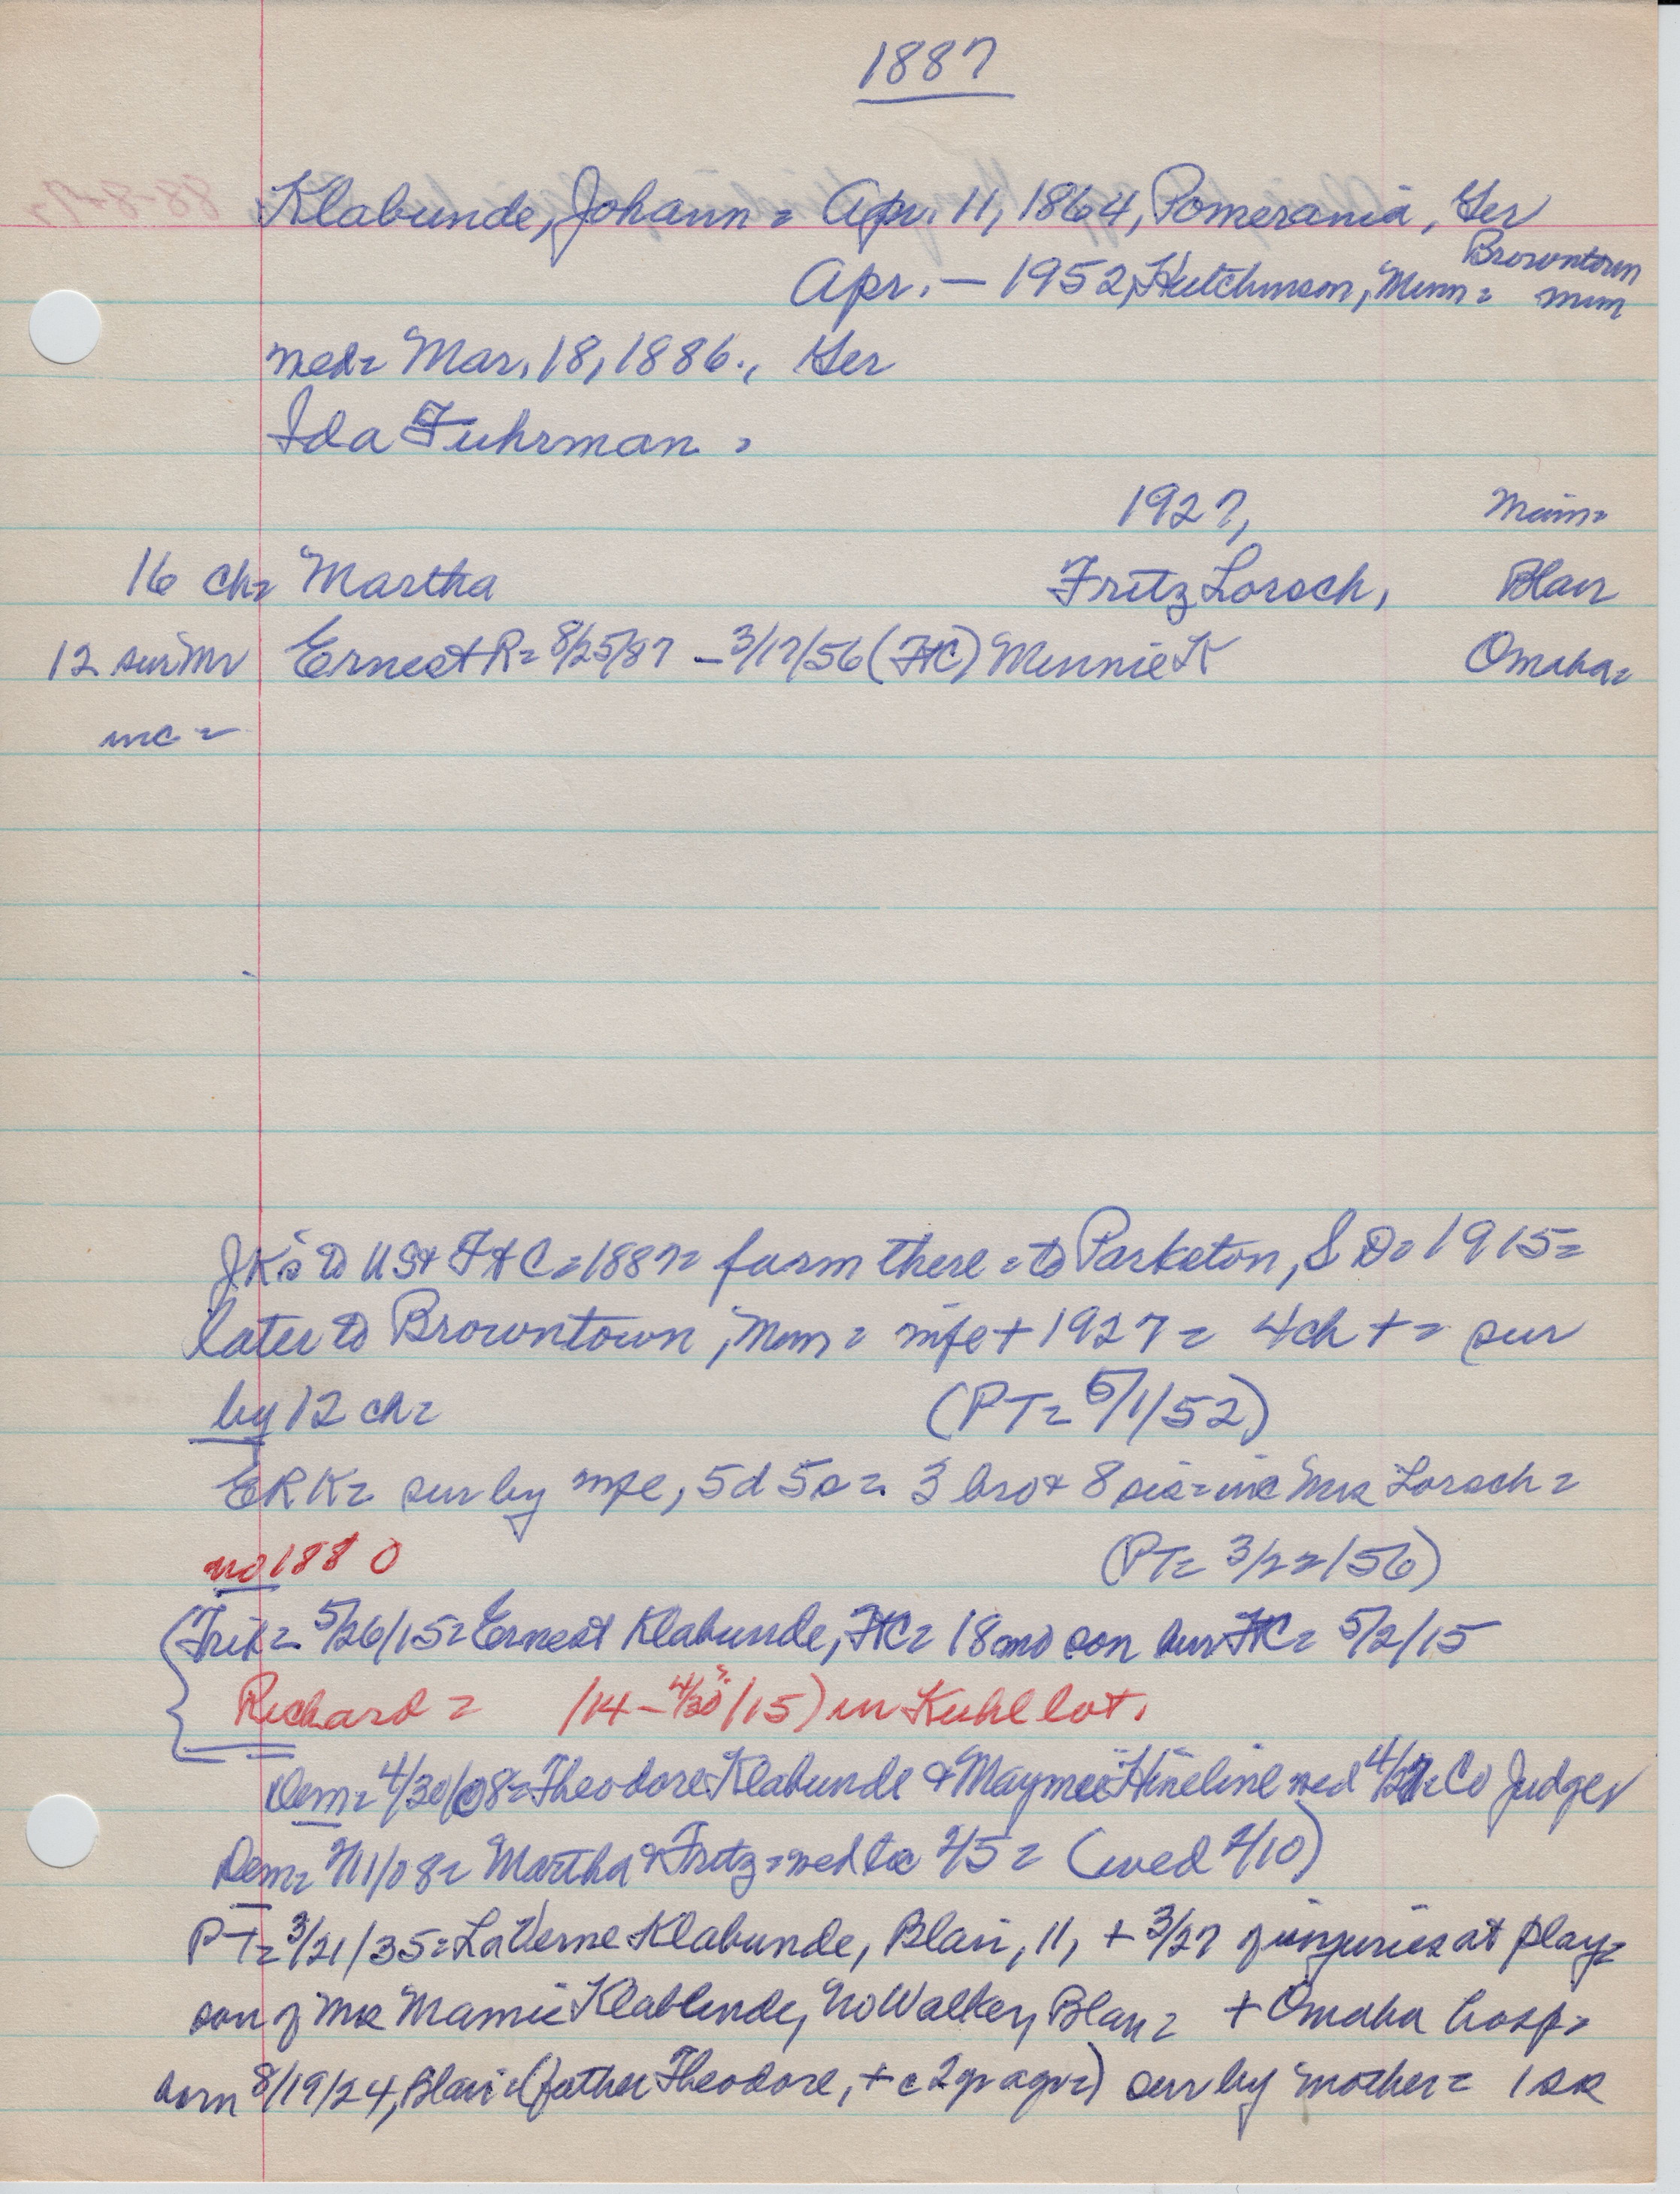 1887
Klabunde, Johann = Apr. 11, 1864, Pomerania, Ger
Browntown
Apr. — 1952, Hutchinson, Minn = Minn
med = Mar. 18, 1886., Ger
Ida Fuhrman =
1927, Minn =
16 ch = Martha Fritz Lorsch, Blair
12 sur Mr Ernest R = 8/25/87 – 3/17/56 (FtC) Minnie K Omaha =
inc =
JK's to US & FtC = 1887 = farm there = to Parkston, SD = 1915 =
later to Browntown, Minn = wife + 1927 = 4 ch + = sur
by 12 ch = (PT = 5/1/52)
ERK = sur by wife, 5d 5s = 3 bro & 8 sis = inc Mrs Lorsch =
no 1880 (PT = 3/22/56)
(Trib = 5/26/15 = Ernest Klabunde, FtC = 18 mo son bur FtC = 5/2/15
Richard = /14 – 4/30/15) in Kuhl lot.
Dem = 4/30/08 = Theodore Klabunde & Maymee Hineline med 4/27 = Co Judge
Dem = 2/11/08 = Martha & Fritz = med lic 2/5 = (wed 2/10)
PT = 3/21/35 = LaVerne Klabunde, Blair, 11, + 3/27 of injuries at play =
son of Mrs Mamie Klabunde, No Walker, Blair = + Omaha hosp =
born 8/19/24, Blair = (father Theodore, + c 2 yr ago =) sur by mother = 1 sis